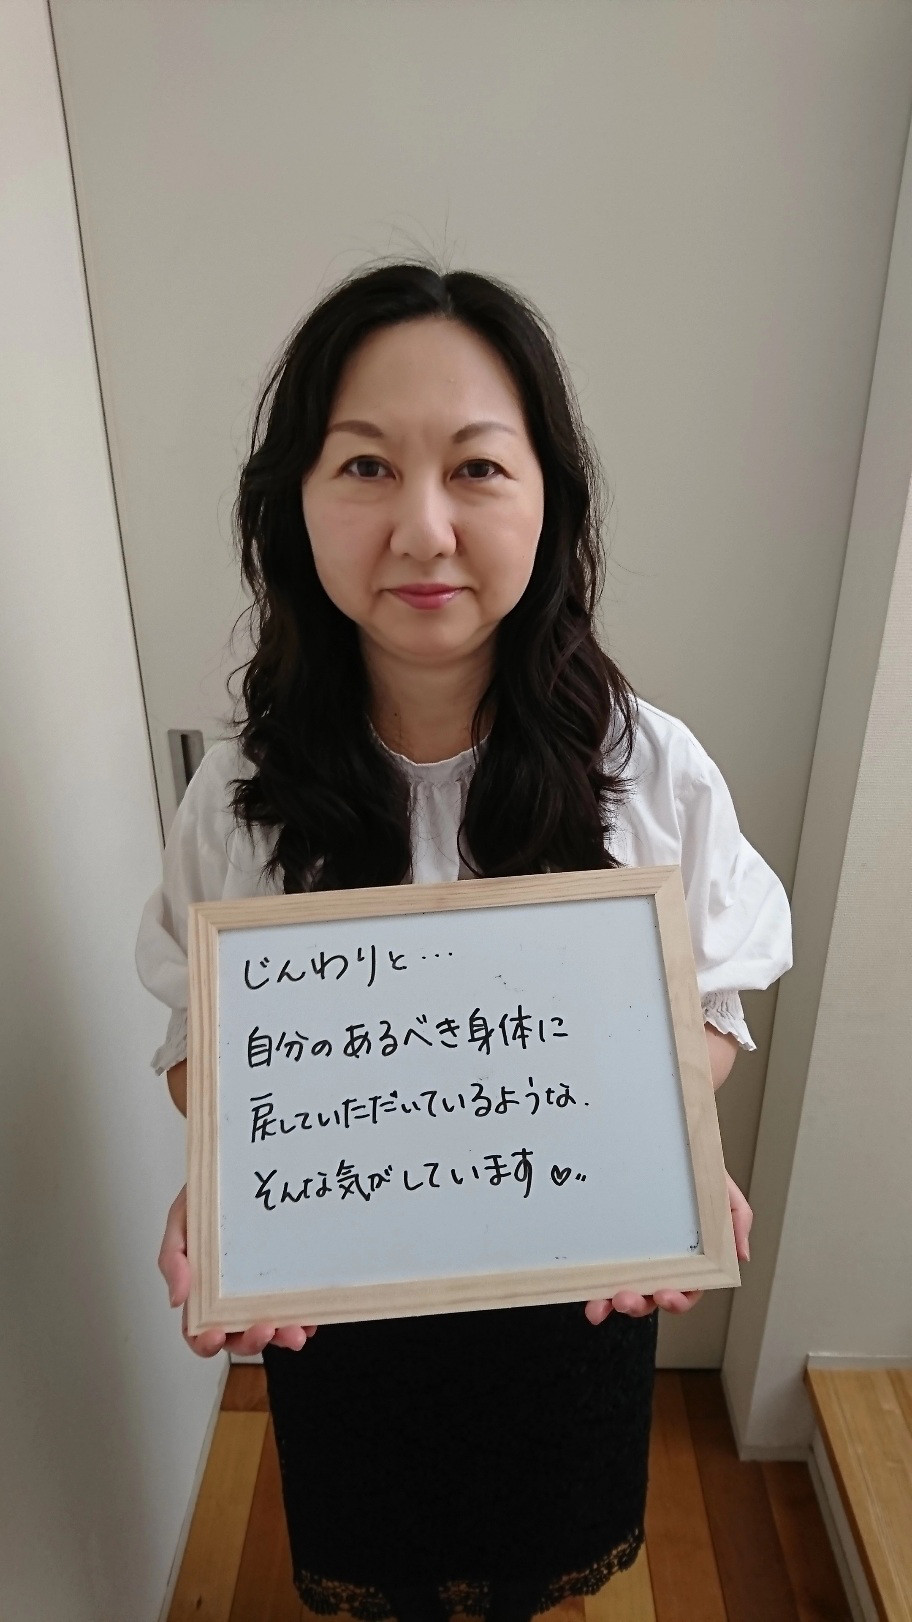 じんわりと…
自分のあるべき身体に
戻していただいているような.
そんな気がしています♡‥